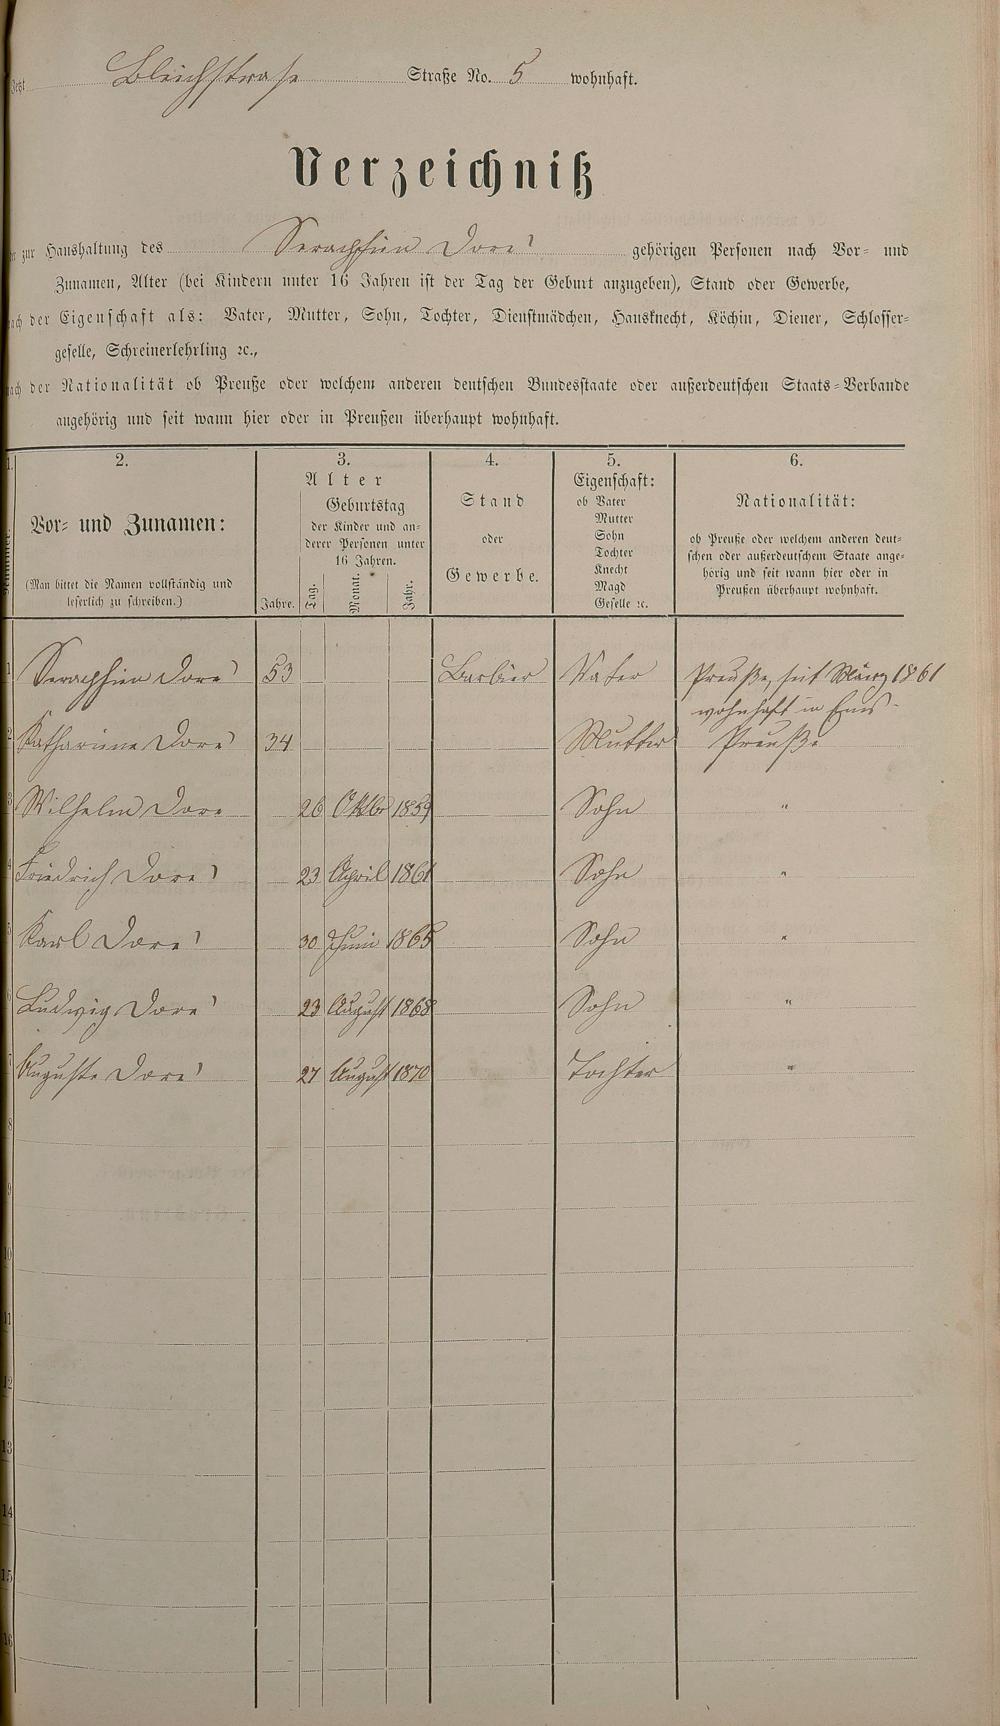 Jetzt Bleichstrase Straße No. 5 wohnhaft.
Verzeichniß
zur Haushaltung des Seraphien Doré gehörigen Personen nach Vor- und
Zunamen, Alter (bei Kindern unter 16 Jahren ist der Tag der Geburt anzugeben), Stand oder Gewerbe,
nach der Eigenschaft als: Vater, Mutter, Sohn, Tochter, Dienstmädchen, Hausknecht, Köchin, Diener, Schlosser-
geselle, Schreinerlehrling ꝛc.,
nach der Nationalität ob Preuße oder welchem anderen deutschen Bundesstaate oder außerdeutschen Staats-Verbande
angehörig und seit wann hier oder in Preußen überhaupt wohnhaft.
1. 2. 3. 4. 5. 6.
Nummer.
Vor- und Zunamen:
(Man bittet die Namen vollständig und
leserlich zu schreiben.)
Alter
Geburtstag
der Kinder und an-
derer Personen unter
16 Jahren.
Jahre. Tag. Monat. Jahr.
Stand
oder
Gewerbe.
Eigenschaft:
ob Vater
Mutter
Sohn
Tochter
Knecht
Magd
Geselle ꝛc.
Nationalität:
ob Preuße oder welchem anderen deut-
schen oder außerdeutschem Staate ange-
hörig und seit wann hier oder in
Preußen überhaupt wohnhaft.
1 Seraphien Doré 53 Barbier Vater Preuße, seit März 1861
wohnhaft in Ems.
2 Katharina Doré 34 Mutter Preuße
3 Wilhelm Dore 26 Oktbr 1859 Sohn "
4 Friedrich Doré 23 April 1861 Sohn "
5 Karl Doré 30 Juni 1865 Sohn "
6 Ludwig Doré 23 August 1868 Sohn "
7 Auguste Doré 27 August 1870 Tochter "
8
9
10
11
12
13
14
15
16